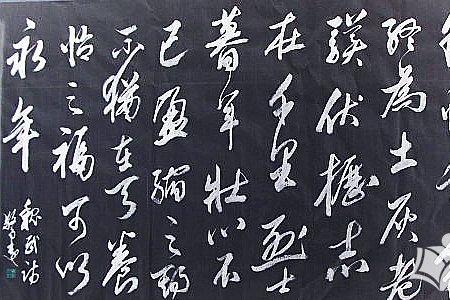 終為土灰老
驥伏櫪志
在千里烈士
暮年壮心不
已盈縮之期
不在天養
怡之福可以
永年
魏武诗